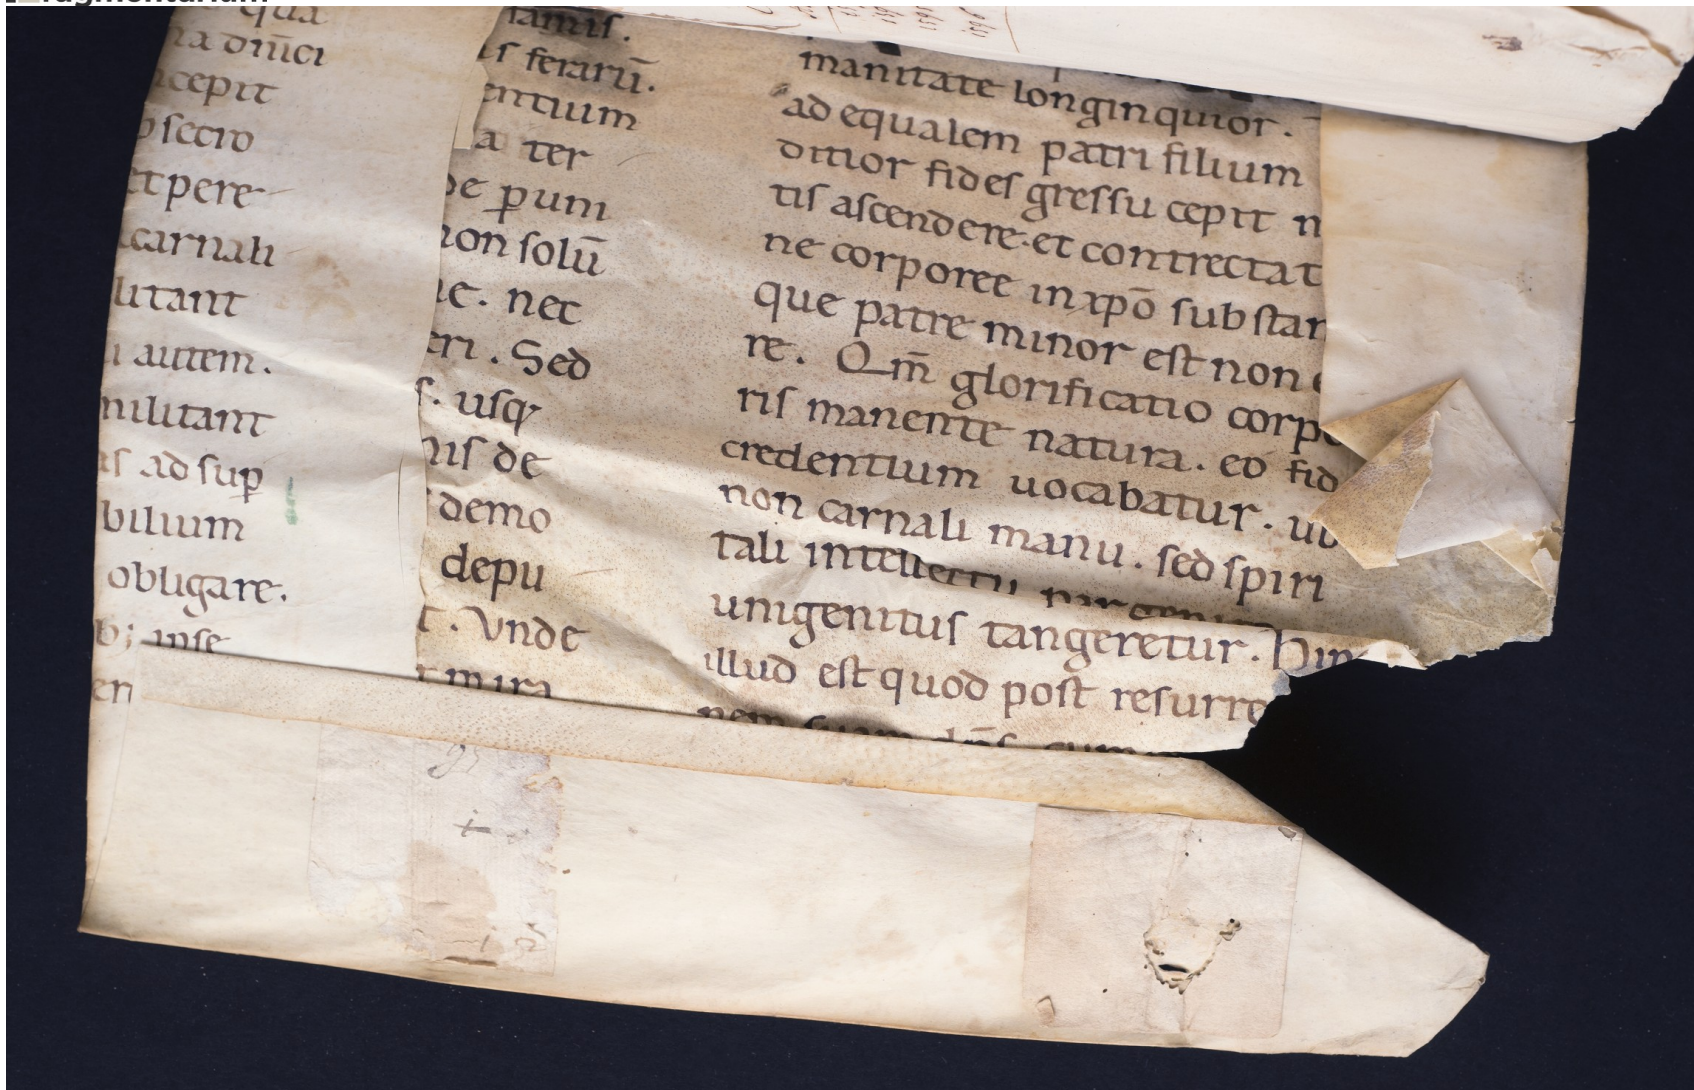 qua
na diūci
cepit
secto
et pere
carnali
litant
autem.
militant
as ad sup̄
bilium
obligare.
b; ipse
en
tamis.
is ferarū.
entium
a ter
de p̄uni
non solū
ne. nec
eri. Sed
s. usq;
nis de
demo
depu
T. Vnde
t mira
manitate longinquior.
ad equalem patri filium
ditior fides gressu cepit n
tis ascendere. et contrectat
ne corporee in xp̄o substan
que patre minor est non
re. Qm̄ glorificatio corpo
ris manente natura. eo fid
credentium uocabatur. ub
non carnali manu. sed spiri
tali intellectu par geni
unigenitus tangeretur. Hinc
illud est quod post resurre
nem suam dn̄s cum